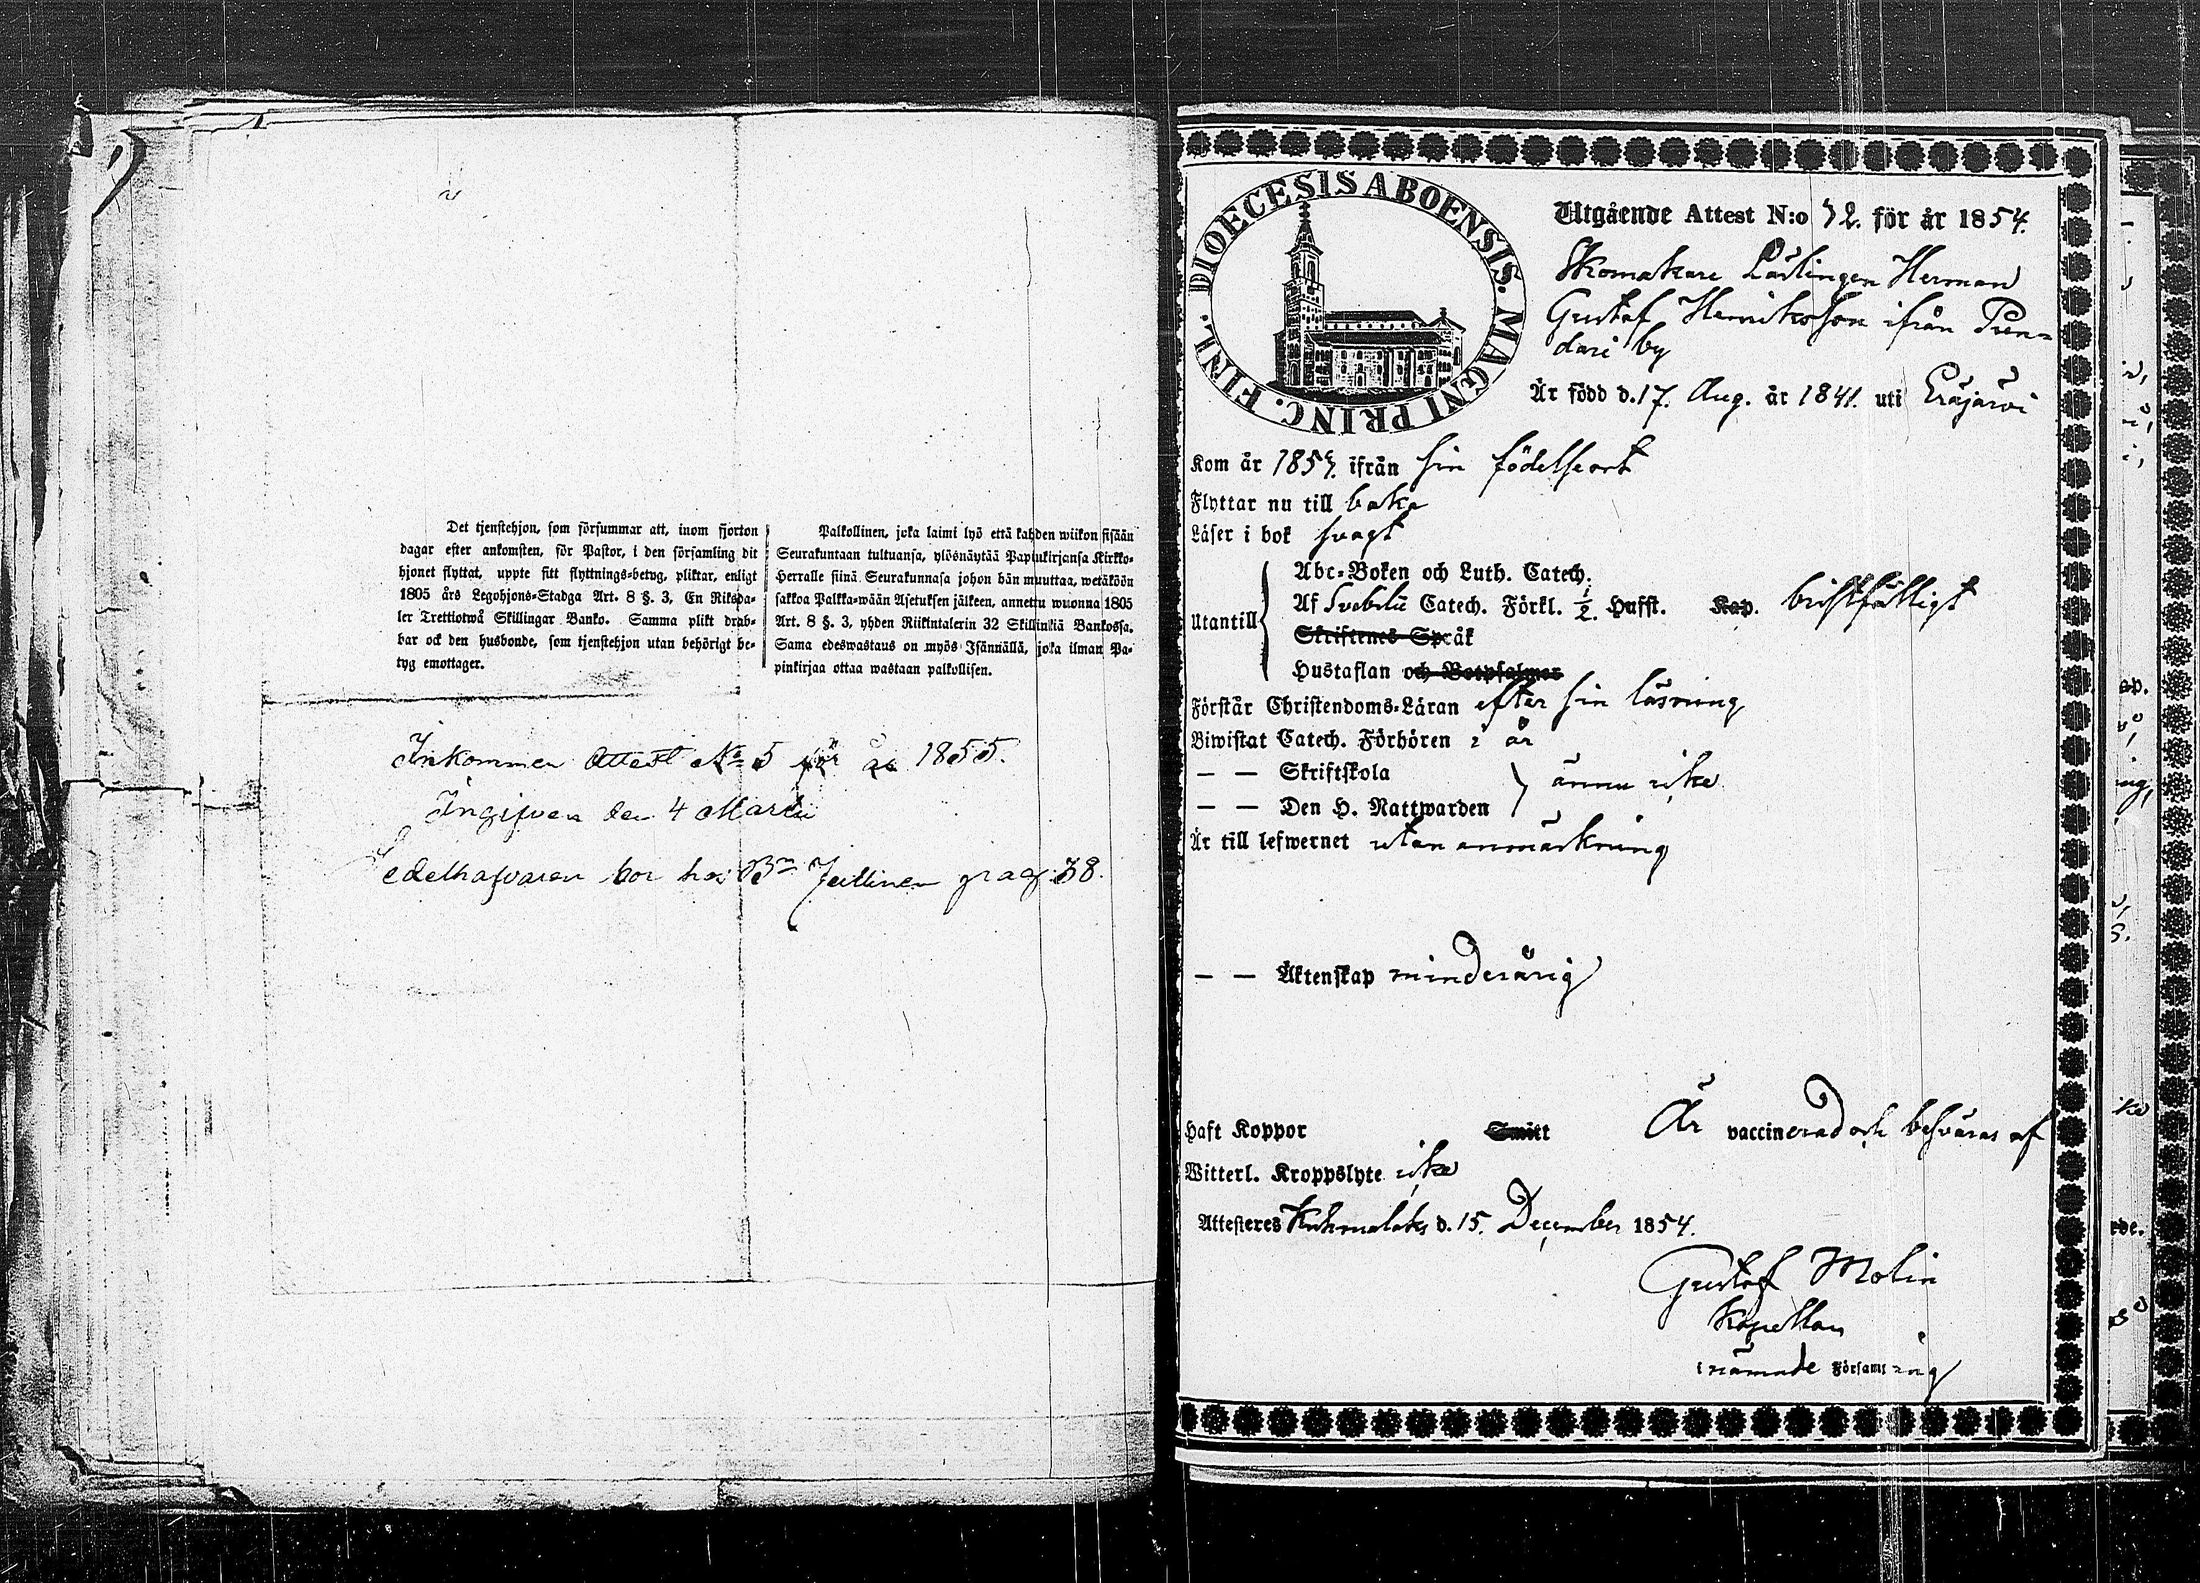 Det tjenstehjon, som försummar att, inom fjorton
dagar efter ankomsten, för Pastor, i den församling dit
hjonet flyttat, uppte sitt flyttnings-betyg, pliktar, enligt
1805 års Legohjons-Stadga Art. 8 §. 3, En Riksda-
ler Trettiotwå Skillingar Banko. Samma plikt drab-
bar ock den husbonde, som tjenstehjon utan behörigt be-
tyg emottager.
Palkollinen, joka laimi lyö että kahden wiikon sisään
Seurakuntaan tultuansa, ylösnäytää Papinkirjansa Kirkko-
Herralle siinä Seurakunnasa johon hän muuttaa, wetäköön
sakkoa Palkka-wään Asetuksen jälkeen, annettu wuonna 1805
Art. 8 §. 3, yhden Riikintalerin 32 Skillinkiä Bankossa.
Sama edeswastaus on myös Isännällä, joka ilman Pa-
pinkirjaa ottaa wastaan palkollisen.
Inkommen Attest No 5 för år 1855.
Ingifven den 4 Martii
edelhafvaren bor hos Bn Juttinen pag: 38.
DIOECESIS ABOENSIS. MAGNI PRINC. FINL.
Utgående Attest N:o 72. för år 1854.
Skomakare Lärlingen Herman
Gustaf Henriksson ifrån Pun-
dari by
Är född d. 17. Aug. år 1841. uti Eräjärvi
Kom år 1854. ifrån sin födelseort
Flyttar nu till baka
Läser i bok svagt
Utantill
Abc-Boken och Luth. Catech.
Af Svebilii Catech. Förkl. 1/2. Hufst. Kap. bristfälligt
Skriftenes Språk
Hustaflan och Botpsalmer
Förstår Christendoms-Läran efter sin läsning
Biwistat Catech. Förhören i år
— — Skriftskola
— — Den H. Nattwarden } ännu icke
Är till lefwernet utan anmärkning
— — Äktenskap minderårig
Haft Koppor Smitt Är vaccinerad och besväras af
Witterl. Kroppslyte icke
Attesteres Kuhmalaks d. 15. December 1854.
Gustaf Molin
Kapellan
i nämnde Församling